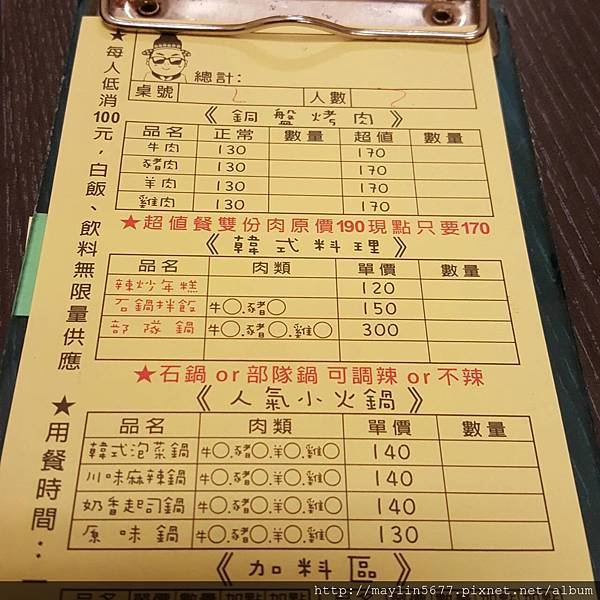 ★每人低消100元，白飯、飲料無限量供應
★用餐時間：
總計：
桌號 2 人數 2
《銅盤烤肉》
品名 正常 數量 超值 數量
牛肉 130 170
豬肉 130 170
羊肉 130 170
雞肉 130 170
★超值餐雙份肉原價190現點只要170
《韓式料理》
品名 肉類 單價 數量
辣炒年糕 120
石鍋拌飯 牛○.豬○ 150
部隊鍋 牛○.豬○.雞○ 300
★石鍋 or 部隊鍋 可調辣 or 不辣
《人氣小火鍋》
品名 肉類 單價 數量
韓式泡菜鍋 牛○.豬○.羊○.雞○ 140
川味麻辣鍋 牛○.豬○.羊○.雞○ 140
奶香起司鍋 牛○.豬○.羊○.雞○ 140
原味鍋 牛○.豬○.羊○.雞○ 130
《加料區》
品名 單價 數量 加點
http://maylin5677.pixnet.net/album